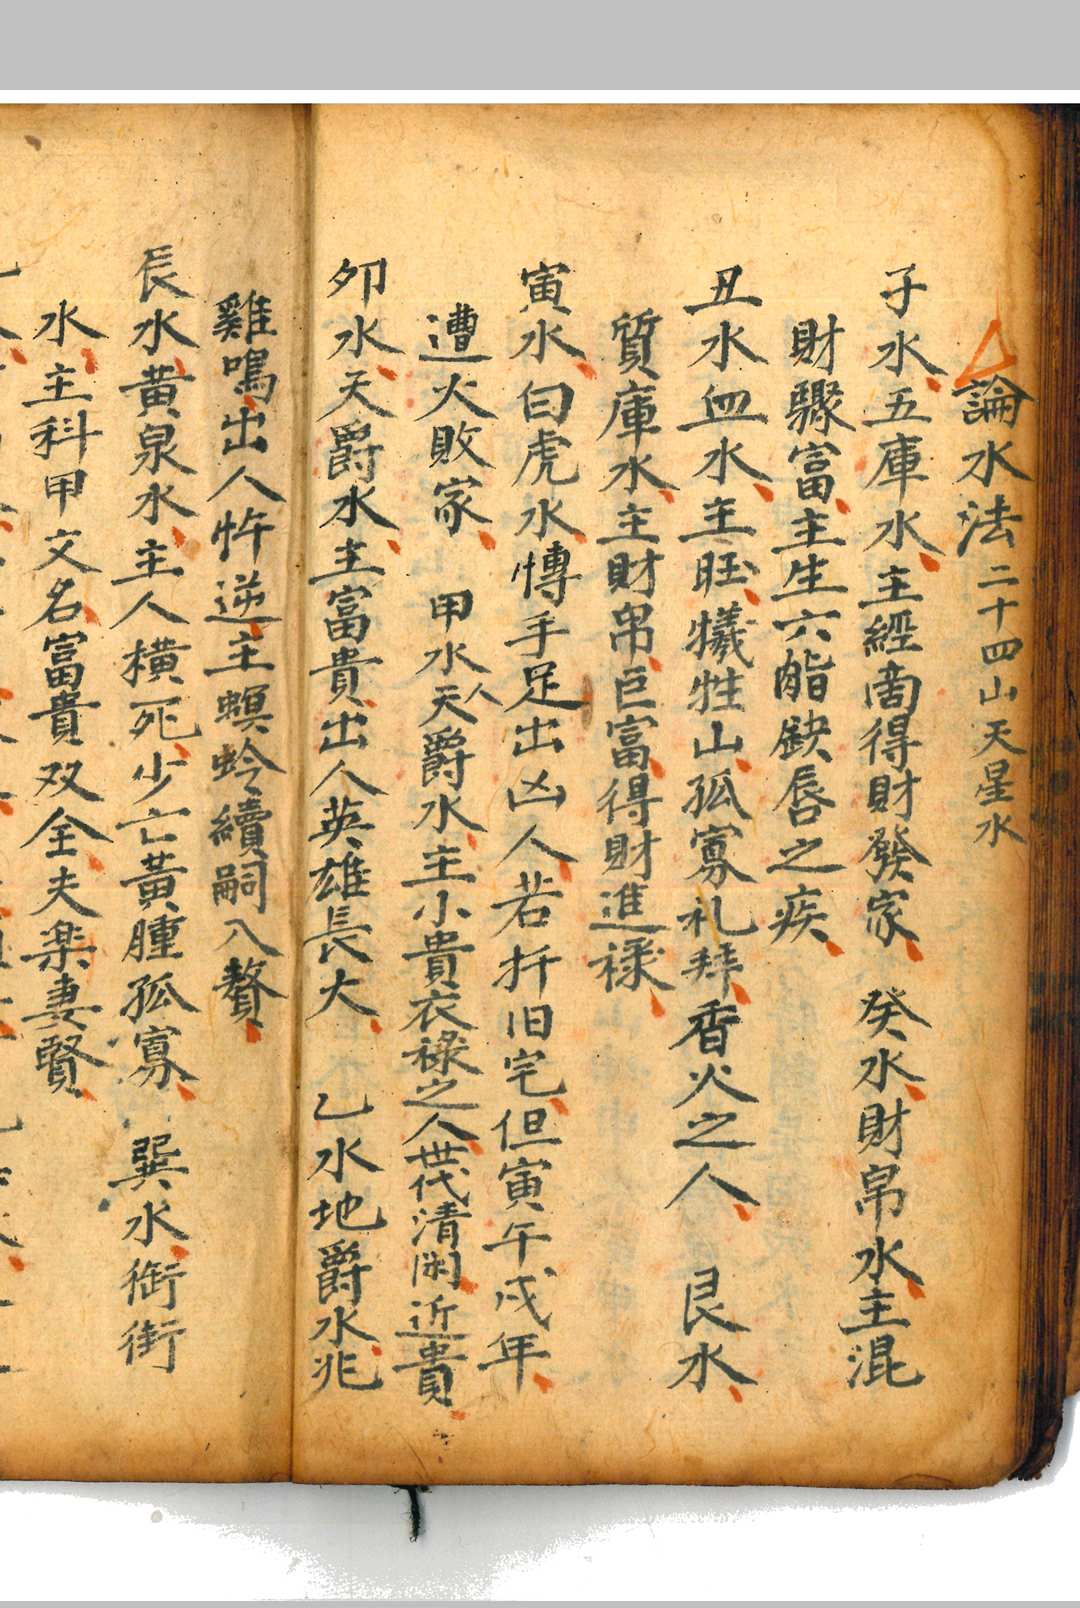 論水法二十四山天星水
子水五庫水主經商得財發家 癸水財帛水主混
財驟富主生六 缺唇之疾
丑水血水主旺犧牲山孤寡礼拜香火之人 艮水
質庫水主財帛巨富得財進祿
寅水曰虎水愽手足出凶人若扦旧宅但寅午戌年
遭火敗家 甲水天爵水主小貴衣祿之人世代清閑近貴人
夘水天爵水主富貴出人英雄長大 乙水地爵水兆
雞鳴出人忤逆主螟蛉續嗣入贅
辰水黄泉水主人橫死少亡黃腫孤寡 巽水御街
水主科甲文名富貴双全夫楽妻賢